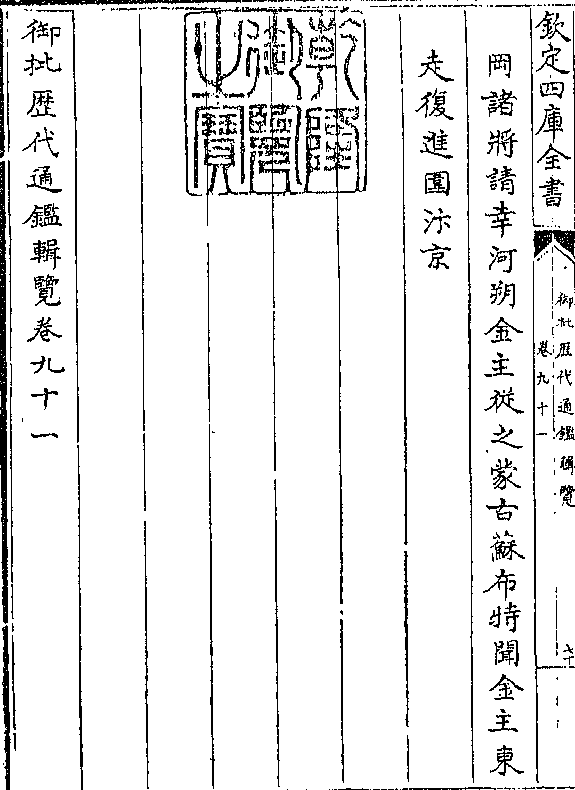 欽定四庫全書
御批歴代通鑑輯覽
卷九十一
岡諸將請幸河朔金主從之蒙古蘇布特聞金主東
走復進圍汴京
乾隆
御覽
之寶
御批歴代通鑑輯覽卷九十一